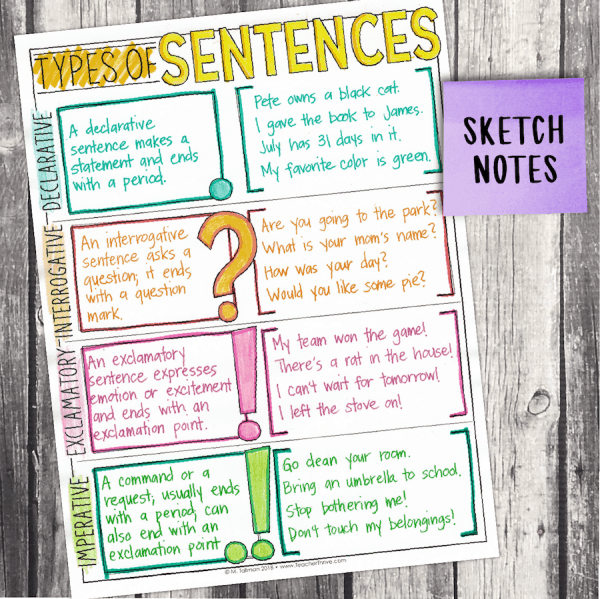 TYPES OF SENTENCES
SKETCH
NOTES
DECLARATIVE
A declarative
sentence makes a
statement and ends
with a period.
Pete owns a black cat.
I gave the book to James.
July has 31 days in it.
My favorite color is green.
INTERROGATIVE
An interrogative
sentence asks a
question; it ends
with a question
mark.
?
Are you going to the park?
What is your mom's name?
How was your day?
Would you like some pie?
EXCLAMATORY
An exclamatory
sentence expresses
emotion or excitement
and ends with an
exclamation point.
!
My team won the game!
There's a rat in the house!
I can't wait for tomorrow!
I left the stove on!
IMPERATIVE
A command or a
request; usually ends
with a period; can
also end with an
exclamation point
.!
Go clean your room.
Bring an umbrella to school.
Stop bothering me!
Don't touch my belongings!
© M. Tallman 2018 • www.teacherthrive.com